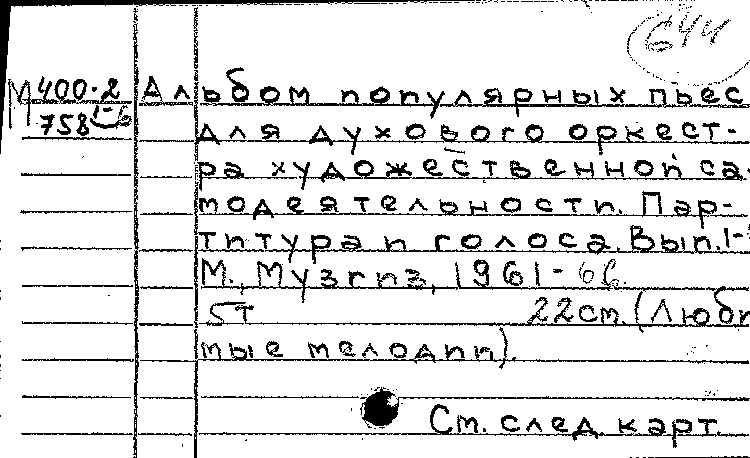 644
М 400-2 Альбом популярных пьес
758 1-6 для духового оркест-
ра художественной са-
модеятельности. Пар-
титура и голоса. Вып. 1-
М., Музгиз, 1961-66.
5т 22см. (Люби
мые мелодии).
См. след карт.